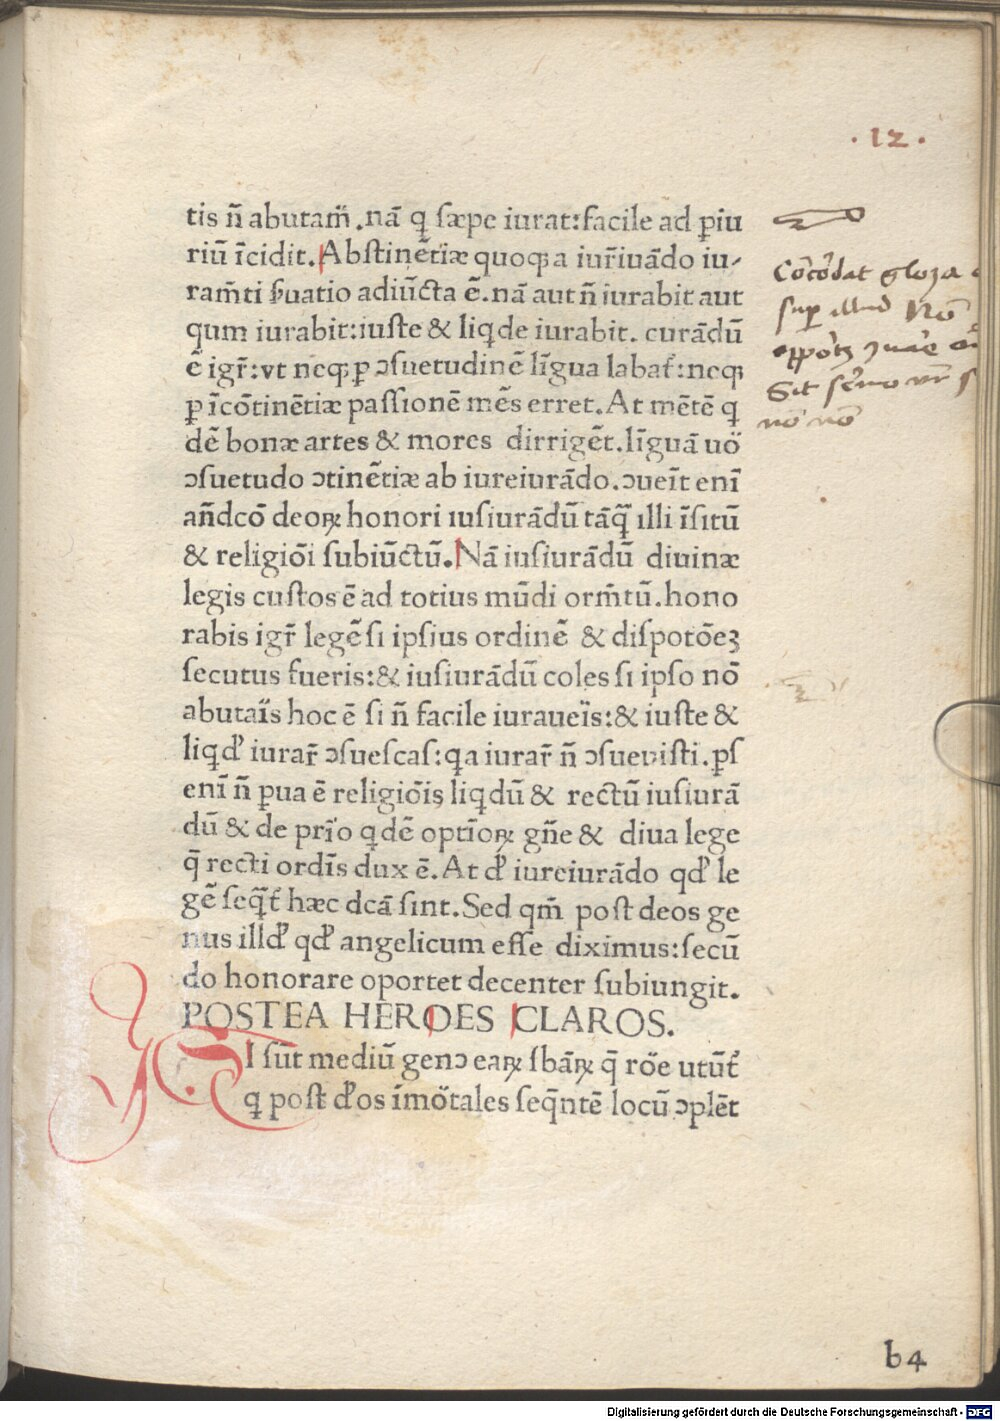 · 12 ·
tis n̄ abutam̄ .nā q̱ sæpe iurat:facile ad ꝑiu
riū īcidit.Abstinētiæ quoqꝫ a iur̄iuādo iu-
ram̄ti ẜuatio adiūcta ē.nā aut n̄ iurabit aut
qum iurabit:iuste & liqde iurabit. curādū
ē igr̄:vt neqꝫ ꝑ ɔsuetudinē līgua labat̄:neqꝫ
ꝑ īcōtinētiæ passionē mēs erret.At mētē q
dē bonæ artes & mores dirrigēt.līguā uō
ɔsuetudo ɔtinētiæ ab iureiurādo.ɔueīt enī
an̄dcō deoꝝ honori iusiurādū tāq̄ illi īsitū
& religiōi subiūctū.Nā iusiurādū diuinæ
legis custos ē ad totius mūdi orm̄tū.hono
rabis igr̄ legē si ipsius ordinē & dispotōeꝫ
secutus fueris:& iusiurādū coles si ipso nō
abutaīs hoc ē si n̄ facile iuraueīs:& iuste &
liqd' iurar̄ ɔsuescas:qa iurar̄ n̄ ɔsueuisti.ꝑs
enī n̄ ꝑua ē religiōis liqdū & rectū iusiurā
dū & de prīo qdē optīoꝝ gn̄e & diua lege
q̄ recti ordīs dux ē.At d' iureiurādo qd' le
gē seq̄t̄ hæc dcā sint.Sed qm̄ post deos ge
nus illd' qd' angelicum esse diximus:secū
do honorare oportet decenter subiungit.
POSTEA HEROES CLAROS.
I sūt mediū genɔ eaꝝ sbāꝝ q̄ rōe utūt̄
q post d'os īmōtales seq̄ntē locū ɔplēt
Cōcōdat gloza
sup illud Nō
Sit sermo vr̄
nō nō
b4
Digitalisierung gefördert durch die Deutsche Forschungsgemeinschaft - DFG